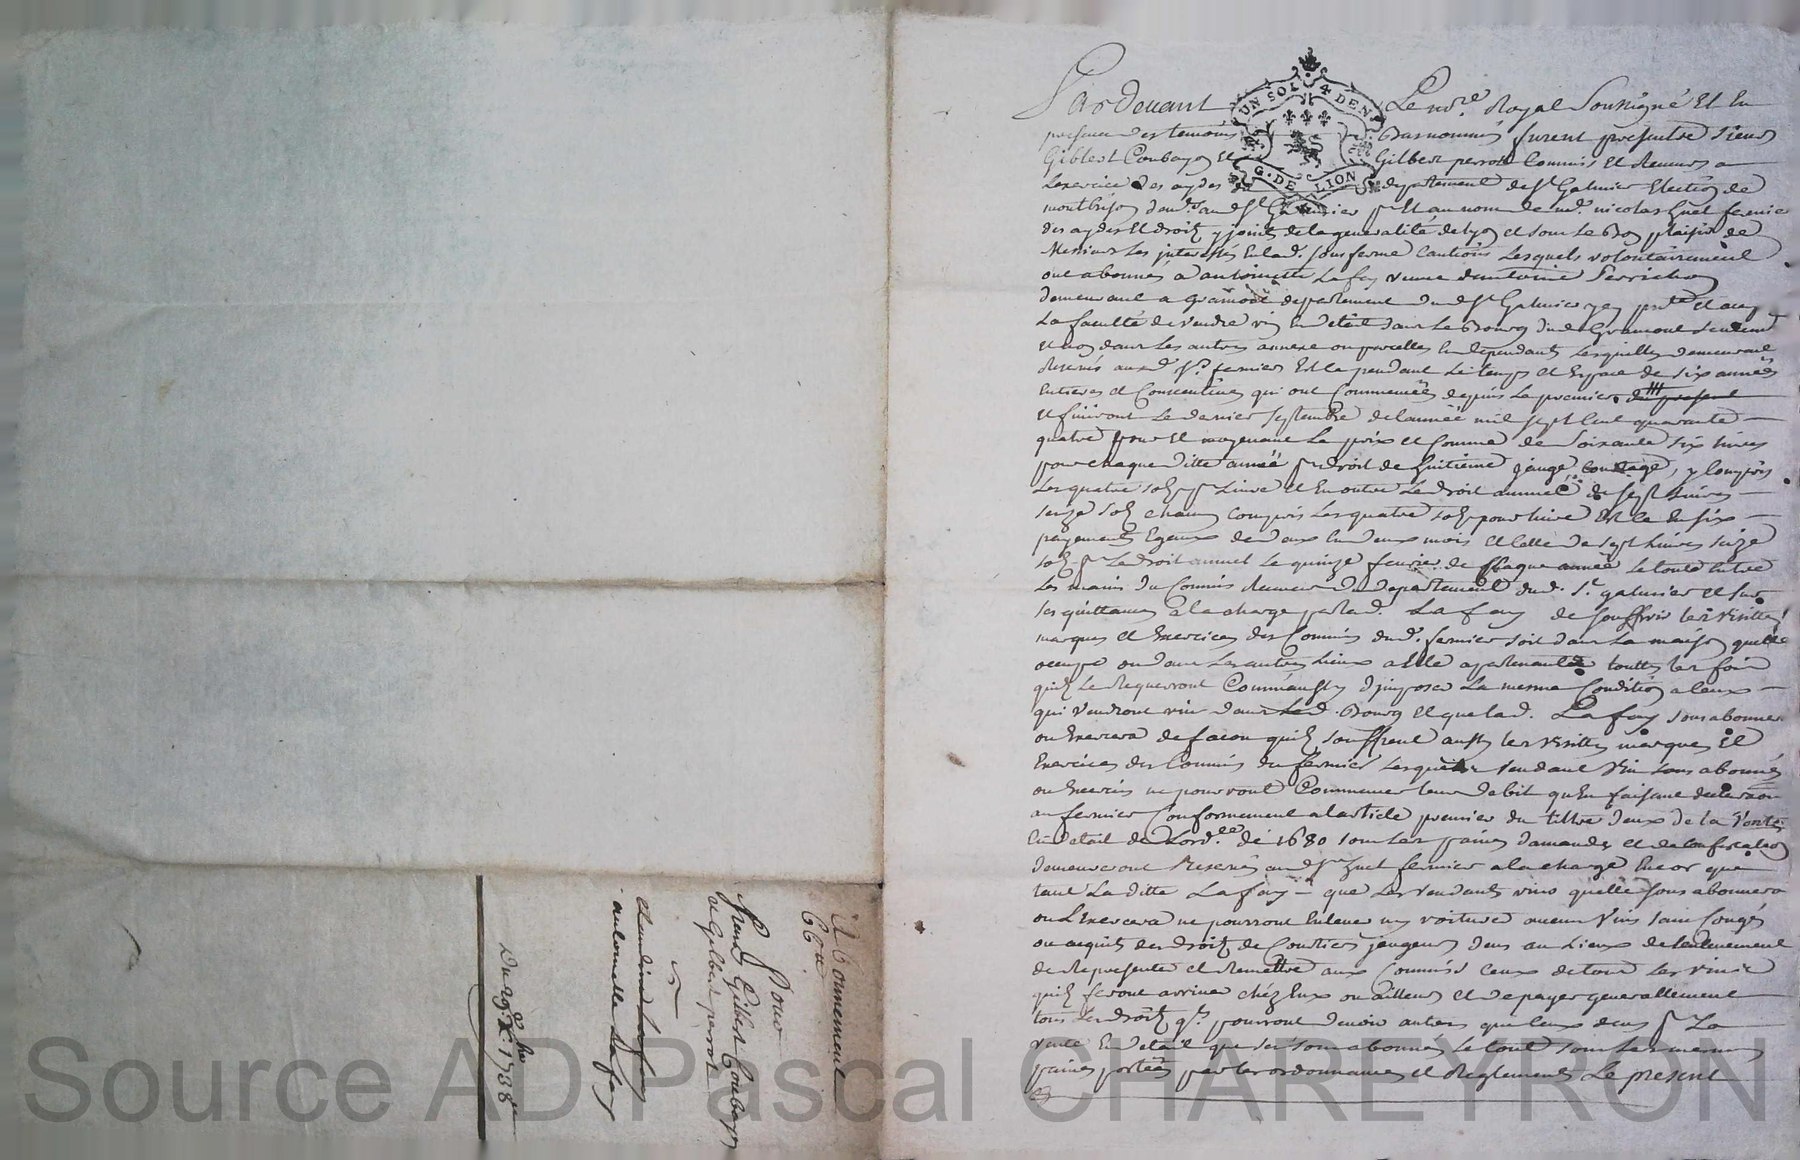 Pardevant Le no.re Royal Soussigné Et En
presence des temoins Basnommés furent presents Sieurs
Gilbert Coubayon Et Gilbert perrot Commis Et Receveurs a
Lexercice des aydes du departement de St Galmier Election de
montbrison dem.ts aud St Galmier pr Et au nom de me. nicolas huet fermier
des aydes Et droitz y joints de la generalité de lyon et sous Le Bon plaisir de
Messieurs Les interessés En lad. sous ferme Cautions Lesquels volontairement
ont abonnés a antoinette Lafay veuve dantoine Perrichon
demeurant a Gramont departement dud St Galmier
La faculté de vendre vin En detail dans Le Bourg dud Gramont seulement
Et non dans Les autres annexe ou parcelles En dependants Lesquelles demeurent
Reservés aud Sr. fermier Et Ce pendant Le temps et Espace de six années
Entieres et Consecutives qui ont Commencées depuis Le premier du present
Et finiront Le dernier septembre de lannée mil sept Cent quarante
quatre pour Et moyenant Le prix et somme de soixante six livres
pour chaque ditte année pr droit de huitieme jauge Courtage, y Compris
Les quatre sols pr Livre et En outre Le droit annuel de sept Livres
seize sols chacun Compris Les quatre sols pour livre Et Ce En six
payements Egeaux de deux En deux mois et Celle de sept Livres seize
sols pr Le droit annuel Le quinze fevrier de Chaque année Le tout Entre
Les mains du Commis Receveur du departement dud. St. galmier et sur
ses quittances a la charge par lad. La fay de souffrir les visittes
marques et Exercices des Commis dud. fermier soit dans La maison quelle
occupe ou dans Les autres Lieux a Elle apartenants touttes les fois
quils Le Requerront Comme aussy dimposer La mesme Condition a Ceux
qui vendront vin dans Led. Bourg et que lad. La fay sousabonnera
ou Exercera de facon quils souffrent aussy les visittes marques Et
Exercices des Commis du fermier Lesquels vendant vin sous abonnés
ou Exercés ne pourront Commencer leur debit quEn faisant declaraon
au fermier Conformement a larticle premier du tiltre deux de la vente
En detail de Lord.ce de 1680 sous Les peines damandes et de Confiscation
demeureront Reservés aud Sr huet fermier a la charge Encor que
tant La ditte La fay que Les vendants vins quelle sous abonnera
ou Exercera ne pourront Enlever ny voiturer aucuns vins sans Congés
ou acquits des droitz de Courtiers jaugeurs deus au Lieux de lenlevement
de Representer et Remettre aux Commis Ceux de tous Les vins
quils feront arriver chéz Eux ou ailleurs et de payer generallement
tous Les droitz qls pourront devoir autres que Ceux deus pr La
vente En detail que sous abonnes Le tout sous Les mesmes
peines portées par les ordonnances et Reglements Le present
UN SOL 4 DEN
G. DE LION
Abonnement
66tt
Pour
Srs Gilbert Coubayon
et Gilbert perrot
C
Claudine Lafay
antoinette Lafay
Du 29e Xbre 1738
Source AD Pascal CHAREYRON